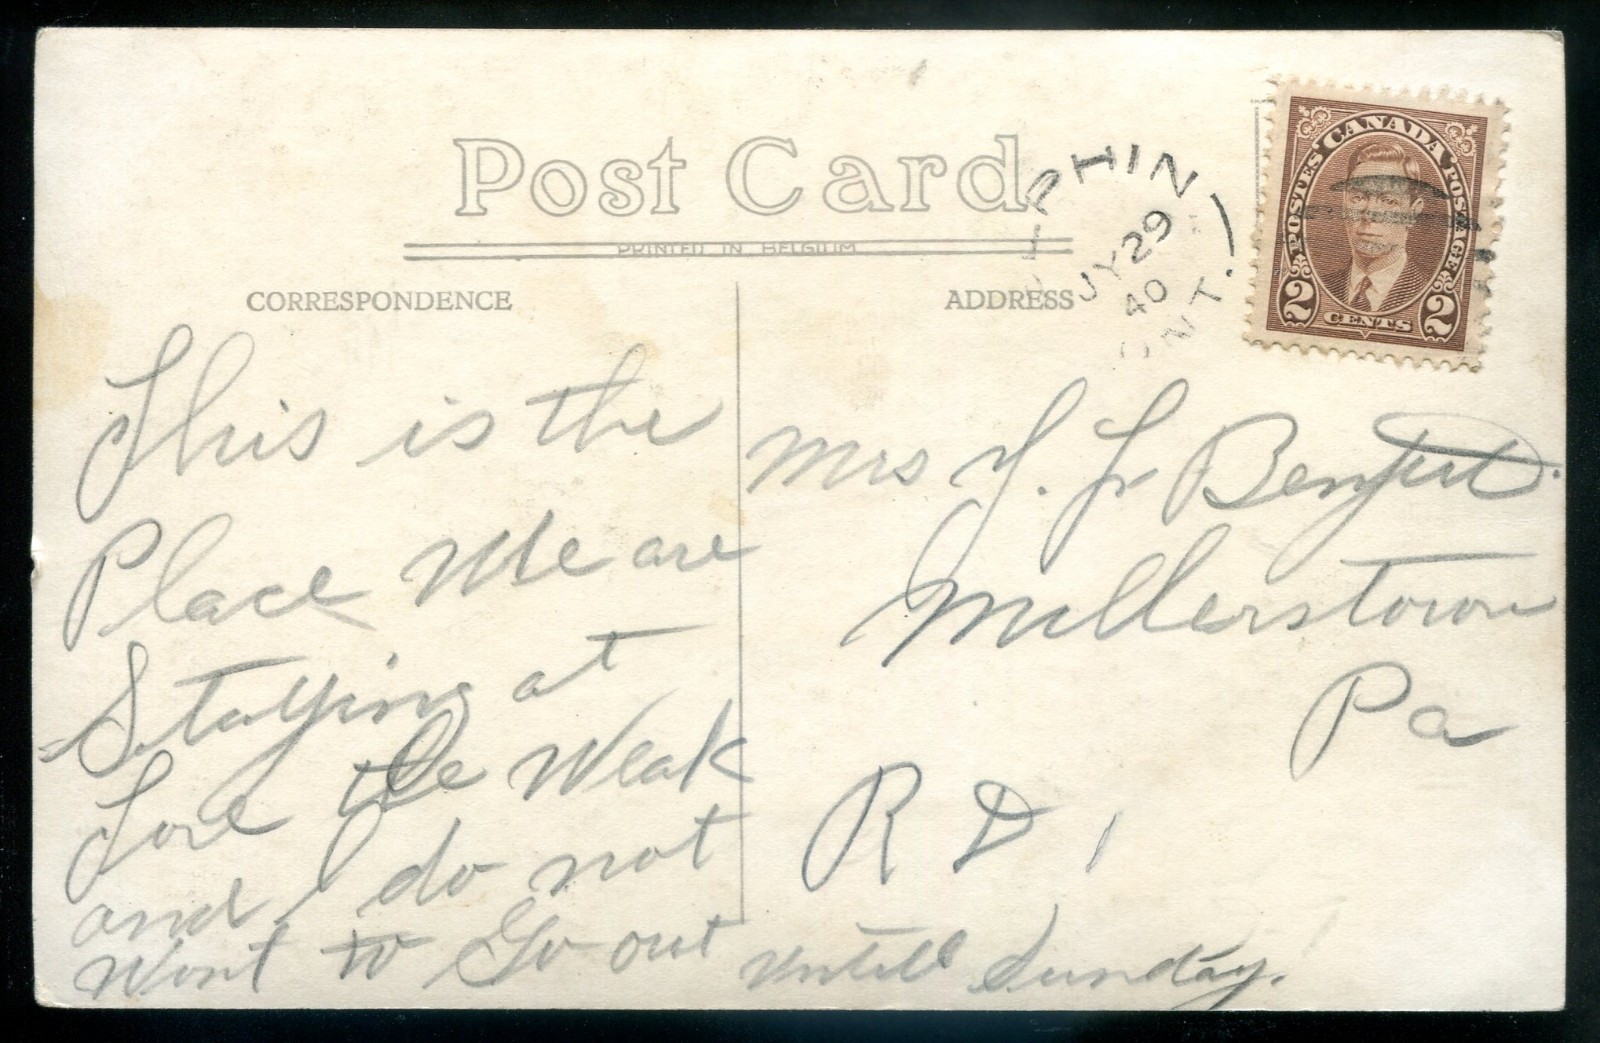 Post Card
PRINTED IN BELGIUM
CORRESPONDENCE
ADDRESS
PHIN
JY 29
40
ONT.
POSTES CANADA POSTAGE
2 CENTS 2
This is the
Place We are
Staying at
for the Weak
and I do not
Wont to Go out untill Sunday.
Mrs
Millerstown
Pa
R D 1